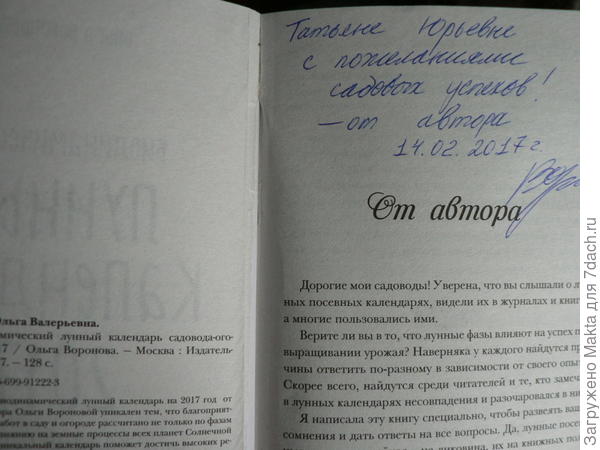 Татьяне Юрьевне
с пожеланиями
садовых успехов!
— от автора
14.02.2017 г.
От автора
Дорогие мои садоводы! Уверена, что вы слышали о л
ных посевных календарях, видели их в журналах и книг
а многие пользовались ими.
Верите ли вы в то, что лунные фазы влияют на успех п
выращивании урожая? Наверняка у каждого найдутся пр
чины ответить по-разному в зависимости от своего опы
Скорее всего, найдутся среди читателей и те, кто замеч
в лунных календарях несовпадения и разочаровался в ни
Я написала эту книгу специально, чтобы развеять ваш
сомнения и дать ответы на все вопросы. Да, лунные посев
льга Валерьевна.
мический лунный календарь садовода-ого-
7 / Ольга Воронова. — Москва : Издатель-
7. — 128 с.
-699-91222-3
иодинамический лунный календарь на 2017 год от
ора Ольги Вороновой уникален тем, что благоприят-
абот в саду и огороде рассчитано не только по фазам
лиянию на земные процессы всех планет Солнечной
никальный календарь поможет достичь высоких ре-
Загружено Makta для 7dach.ru